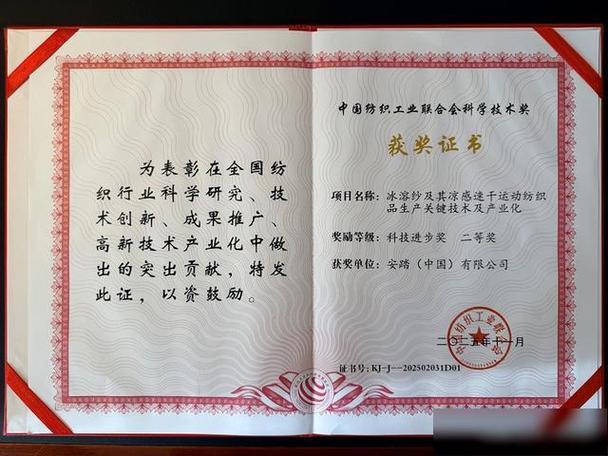 为表彰在全国纺
织行业科学研究、技
术创新、成果推广、
高新技术产业化中做
出的突出贡献，特发
此证，以资鼓励。
中国纺织工业联合会科学技术奖
获奖证书
项目名称：冰溶纱及其凉感速干运动纺织
品生产关键技术及产业化
奖励等级：科技进步奖 二等奖
获奖单位：安踏（中国）有限公司
中国纺织工业联合会
二〇二五年十一月
证书号：KJ-J--202502031D01